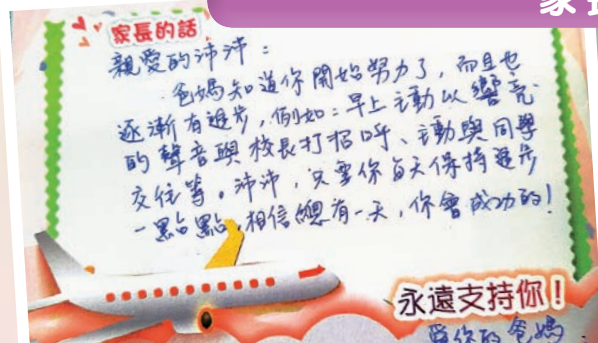 家長
家長的話
親愛的沛沛：
爸媽知道你開始努力了，而且也
逐漸有進步，例如：早上主動以響亮
的聲音與校長打招呼、主動與同學
交往等。沛沛，只要你每天保持進步
一點點，相信總有一天，你會成功的！
永遠支持你！
愛你的爸媽